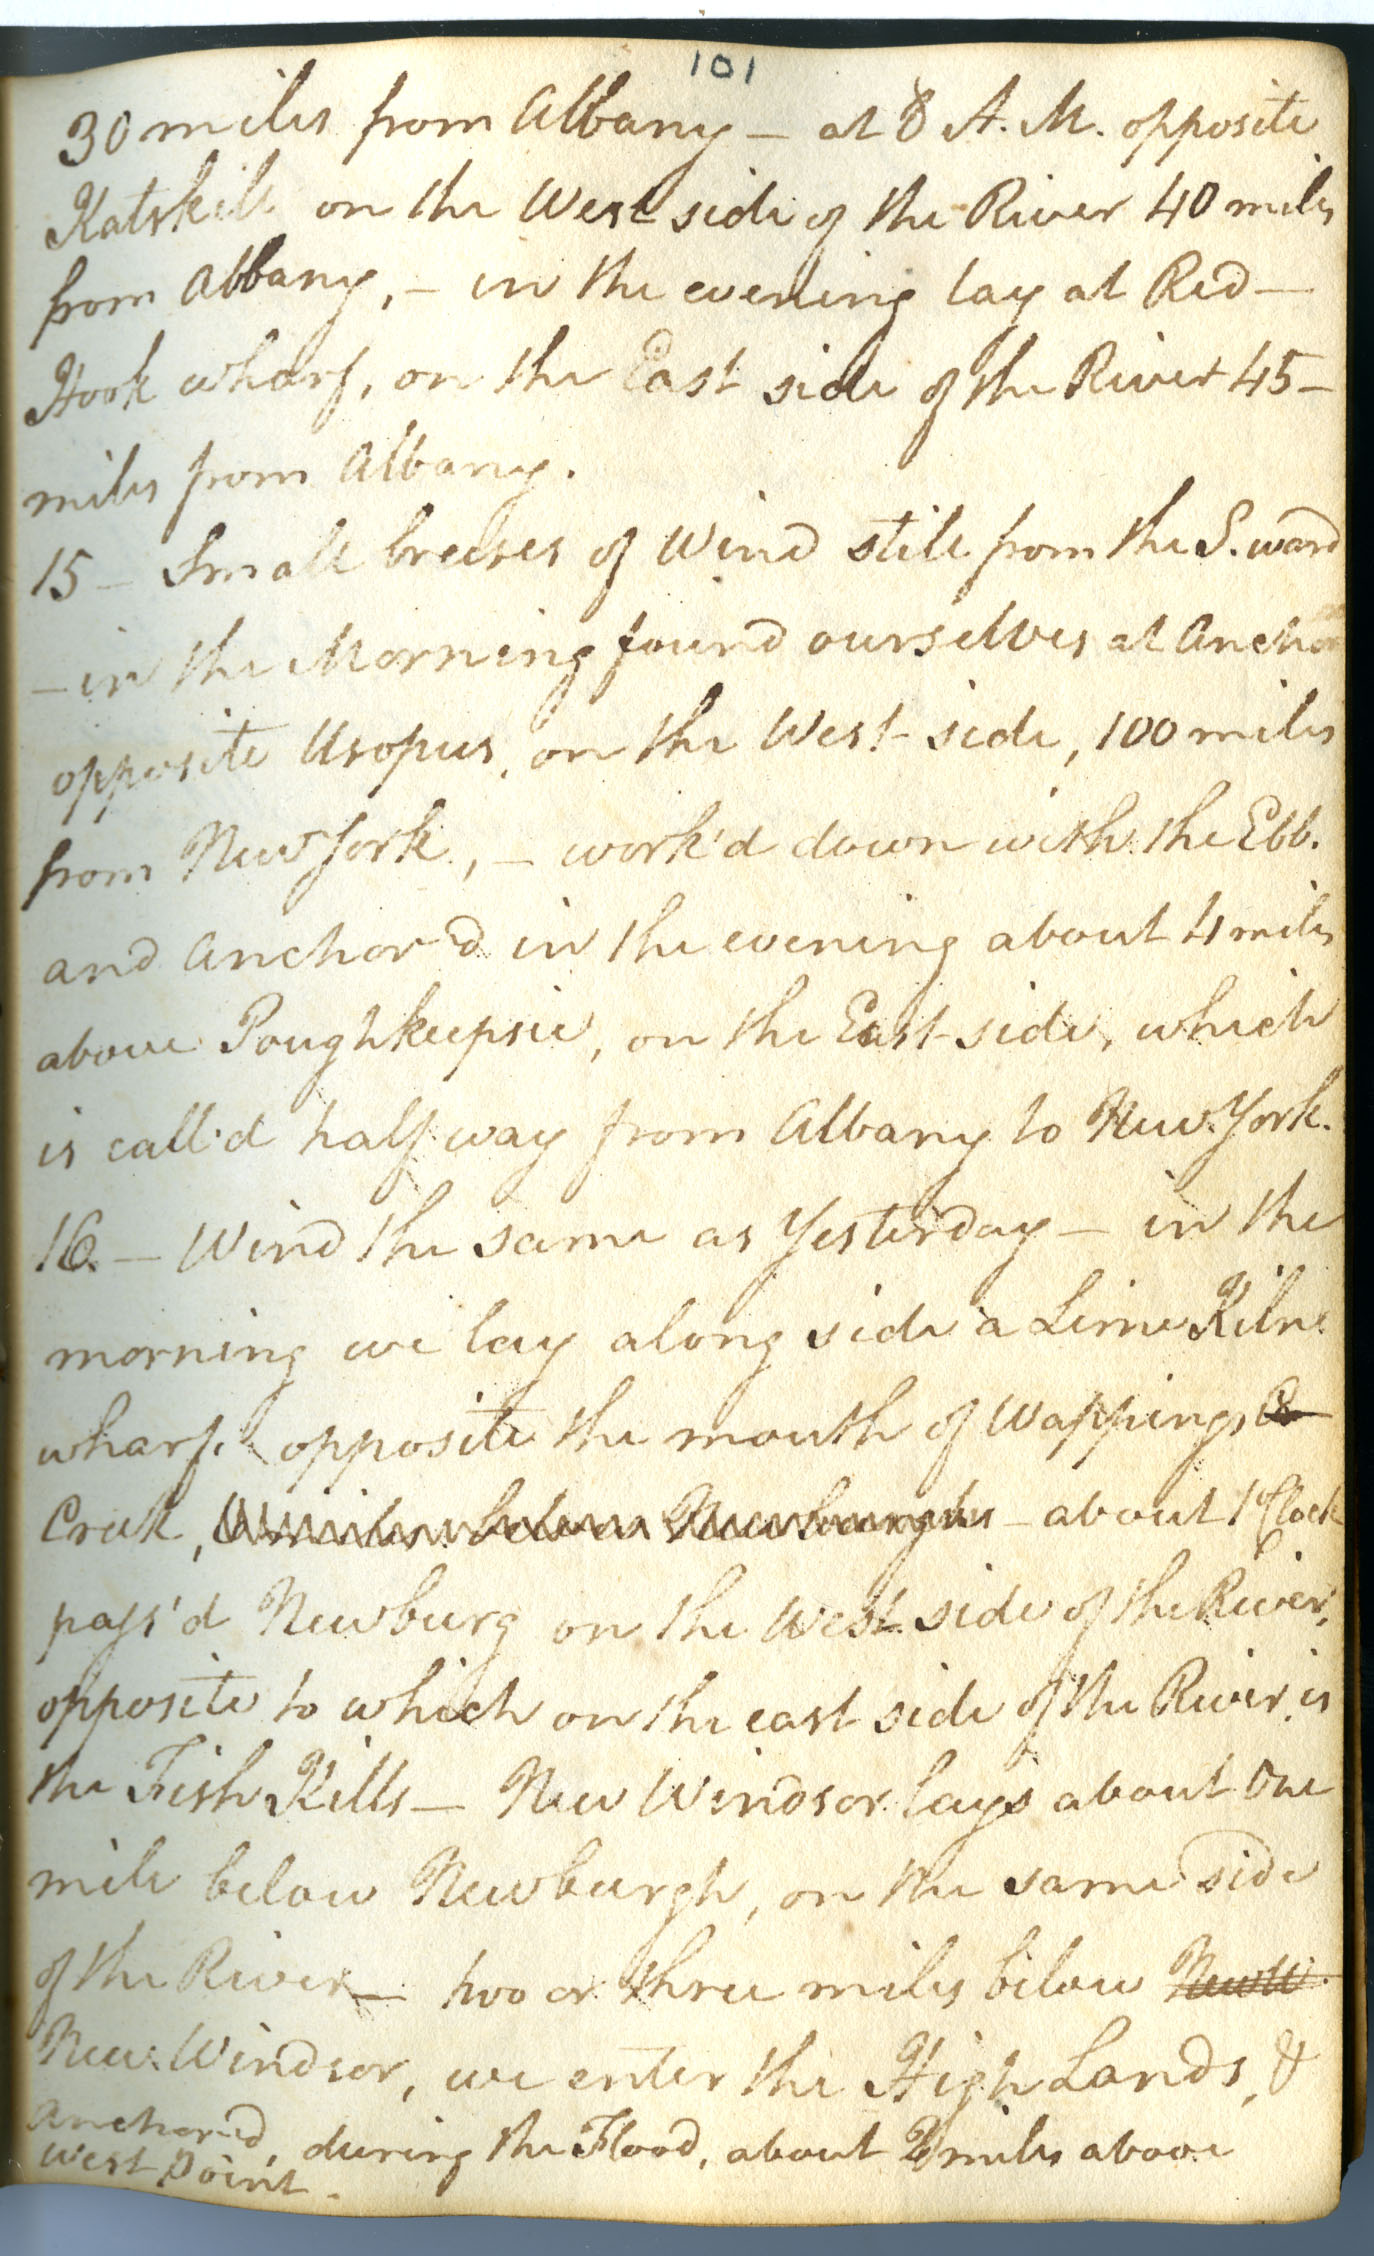 101
30 miles from Albany – at 8 A. M. opposite
Katskill on the West side of the River 40 miles
from Albany, – in the evening lay at Red –
Hook wharf, on the East side of the River 45 –
miles from Albany.
15 – Small breeses of Wind still from the S. ward
– in the Morning found ourselves at Anchor
opposite Usopus, on the West side, 100 miles
from New York, – work'd down with the Ebb.
and Anchor'd in the evening about 4 miles
above Poughkeepsie, on the East side, which
is call'd half way from Albany to New York.
16. – Wind the same as Yesterday – in the
morning we lay along side a Lime Kilne
wharf. opposite the mouth of Wappings Cr
Creek, below Newburgh – about 1 Clock
pass'd Newburg on the West side of the River,
opposite to which on the east side of the River is
the Fish Kills – New Windsor lays about One
mile below Newburgh, on the same side
of the River – two or three miles below New W
New Windsor, we enter the High Lands, &
Anchor'd, during the Flood, about 2 miles above
West Point –